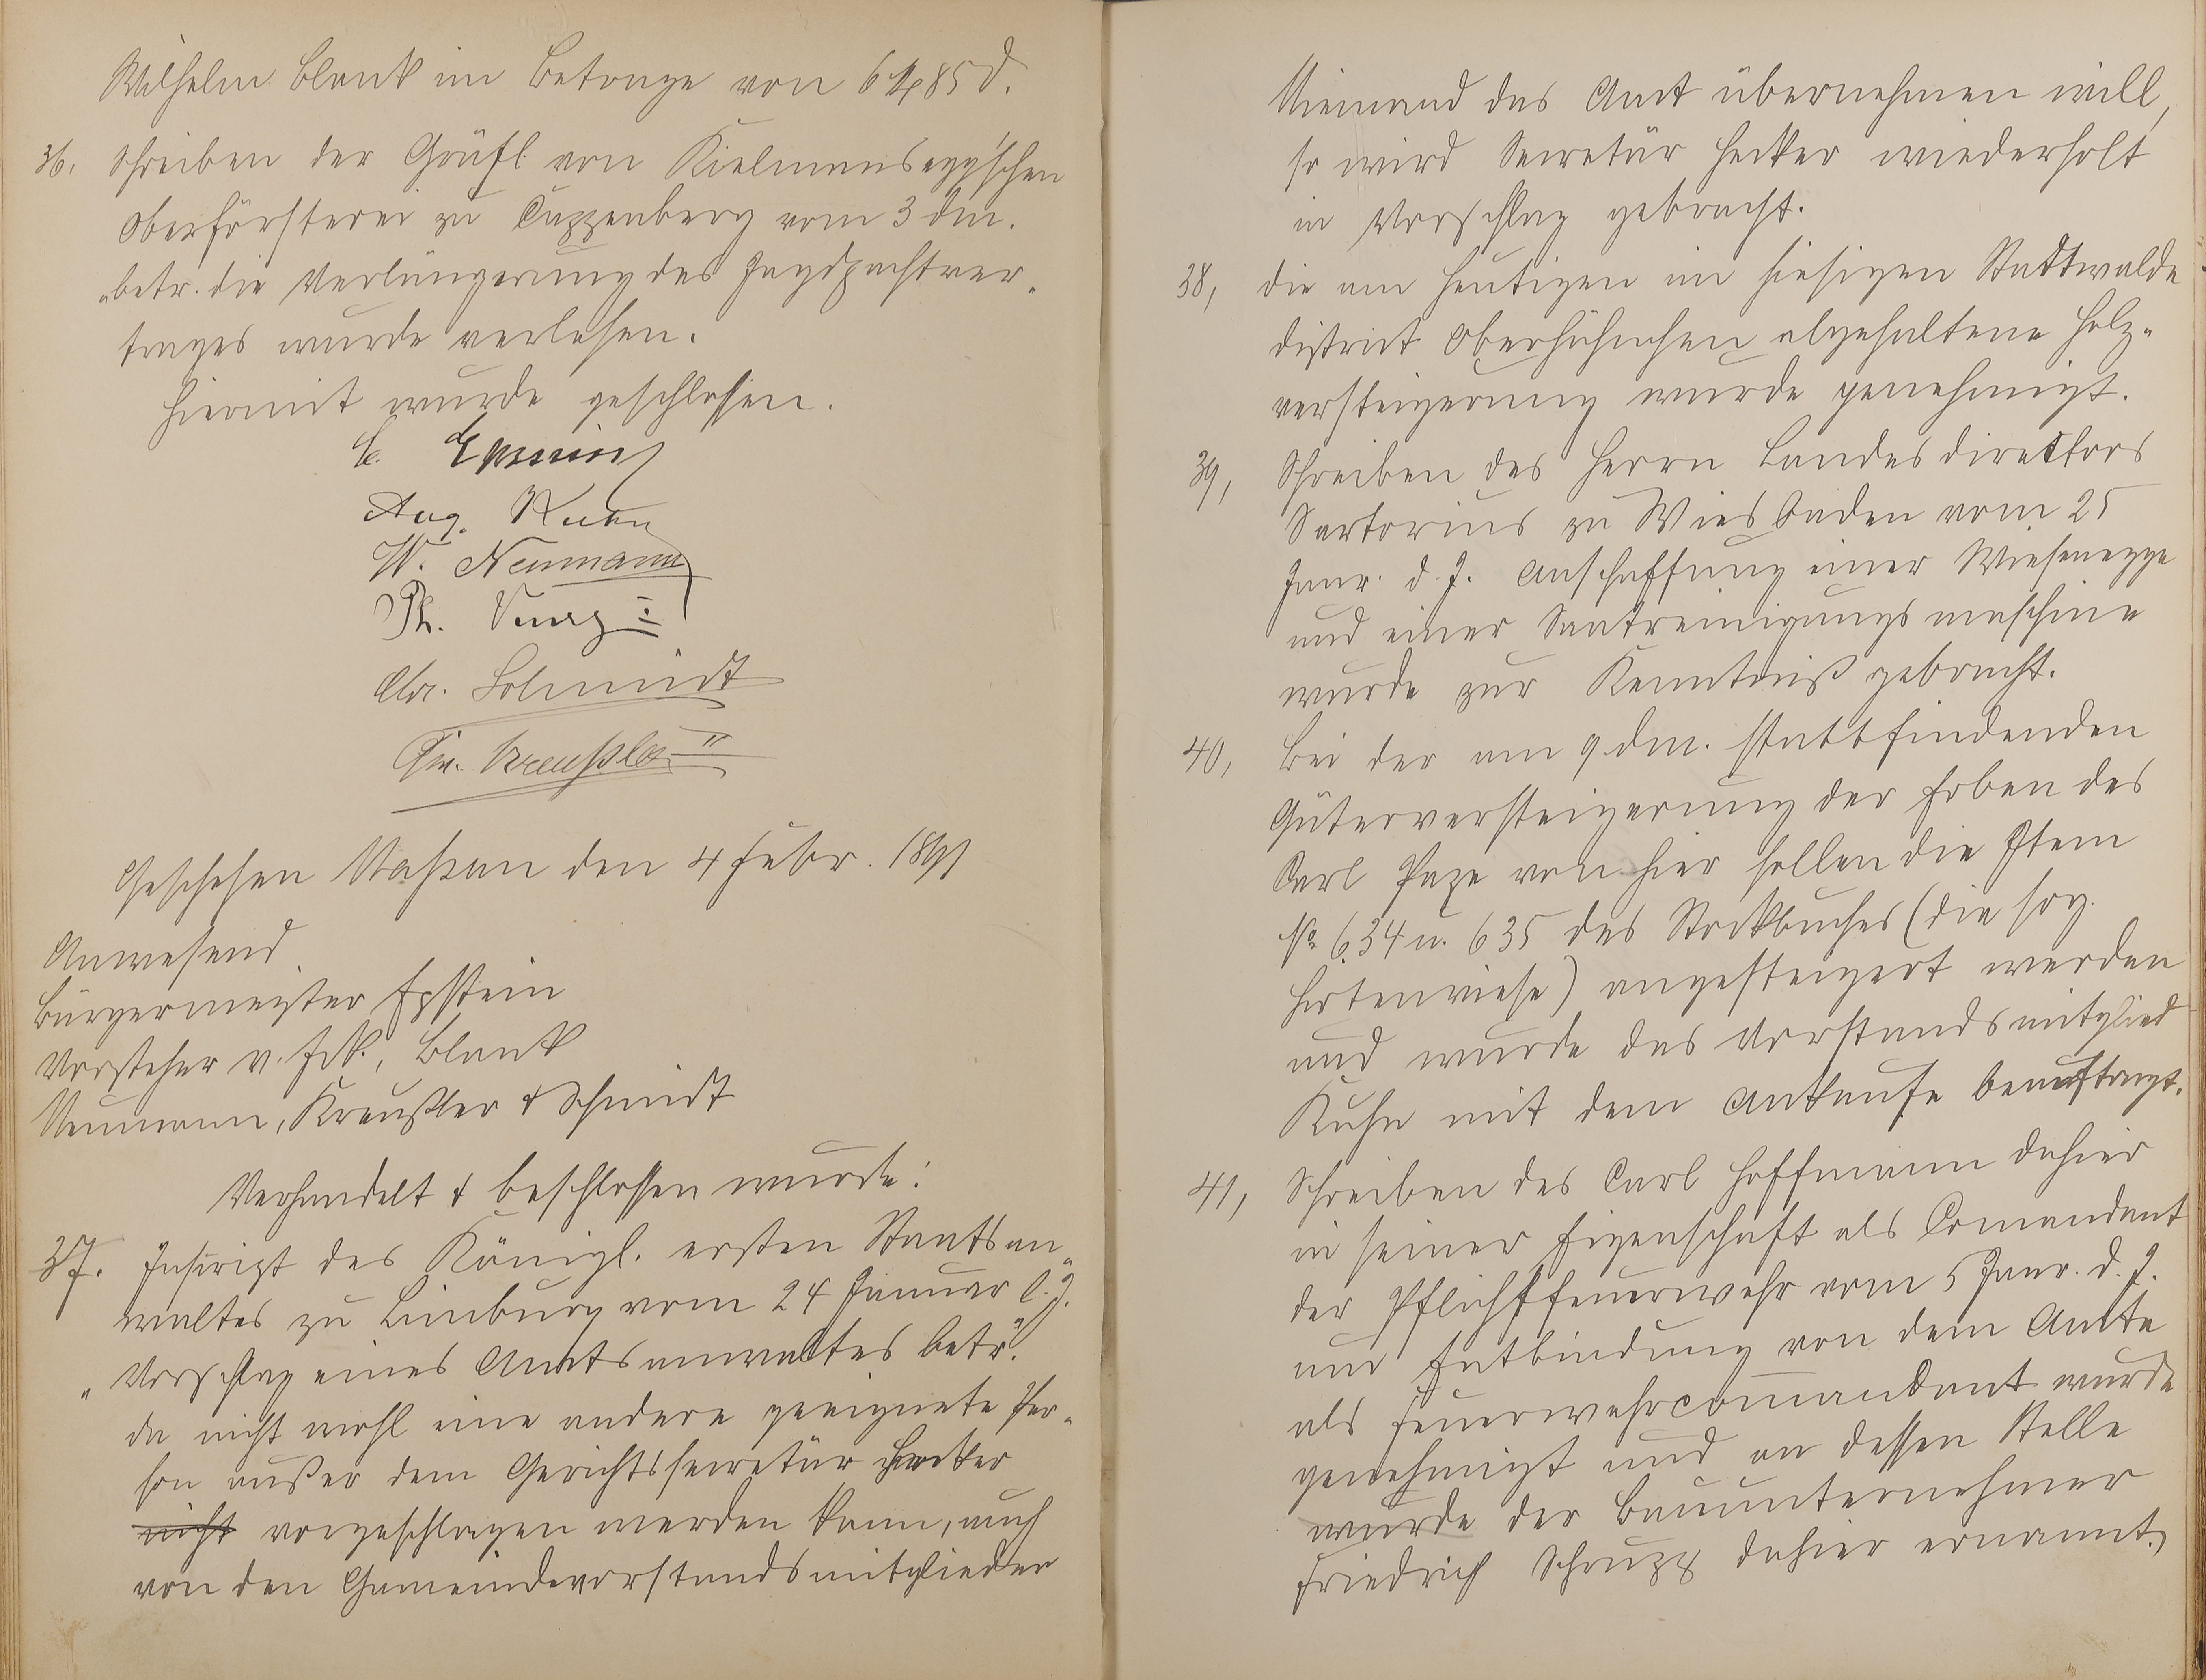 Wilhelm Blank im Betrage von 6 M 85 d.
36. Schreiben der Gräfl. von Kielmansegg'schen
Oberförsterei zu Cappenberg vom 3 dM.
"betr. die Verlängerung des Jagdpachtver-
trages wurde verlesen.
Hiermit wurde geschlossen.
E. Epstein
Aug. Kuhn
W. Neumann
Ph.
Chr. Schmidt
Kreußler II
Geschehen Nassau den 4 Febr. 1891
Anwesend
Bürgermeister Epstein
Vorsteher v. Fck., Blank
Neumann, Kreußler & Schmidt
Verhandelt & beschlossen wurde:
37. Inscript des Königl. ersten Staatsan-
waltes zu Limburg vom 24 Januar l. J.
"Vorschlag eines Amtsanwaltes betr."
da nicht wohl eine andere geeignete Per-
son außer dem Gerichtssecretär Hecker
nicht vorgeschlagen werden kann, auch
von den Gemeindevorstandsmitglieder
Niemand das Amt übernehmen will,
so wird Secretär Hecker wiederholt
in Vorschlag gebracht.
38, die am heutigen im hiesigen Stadtwalde
District Oberhühnchen abgehaltene Holz-
versteigerung wurde genehmigt.
39, Schreiben des Herrn Landesdirektors
Sartorius zu Wiesbaden vom 25
Janr. d. J. Anschaffung einer Wiesenegge
und einer Saatreinigungsmaschine
wurde zur Kenntniß gebracht.
40, Bei der am 9 dM. stattfindenden
Güterversteigerung der Erben des
Carl Paze von hier sollen die Item
No 634 u. 635 des Stockbuches (die sog.
Hirtenwiese) angesteigert werden
und wurde das Vorstandsmitglied
Kuhn mit dem Ankaufe beauftragt.
41, Schreiben des Carl Hoffmann dahier
in seiner Eigenschaft als Comandant
der Pflichtfeuerwehr vom 5 Janr. d. J.
um Entbindung von dem Amte
als Feuerwehrcom̄andant wurde
genehmigt und an dessen Stelle
wurde der Bauunternehmer
Friedrich Schrupp dahier ernannt.